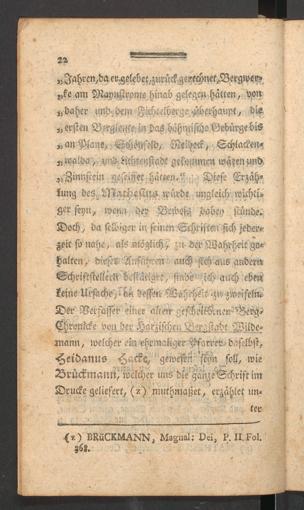 22
„Jahren, da er gelebet, zurück gerechnet, Bergwer-
„ke am Maynstrome hinab gelegen hätten, von
„daher und dem Fichtelberge überhaupt, die
„ersten Bergleute in das böhmische Gebürge bis
„an Plane, Schönfeld, Schlacken-
„walda, und Lichtenstadt gekommen wären und
„Zinnstein geseifet hätten.“ Diese Erzäh-
lung des Mathesius würde ungleich wichti-
ger seyn, wenn der Beweis dabey stünde.
Doch, da selbiger in seinen Schriften sich jeder-
zeit so nahe, als möglich, zu der Wahrheit ge-
halten, dieser Anführen auch sich aus andern
Schriftstellern bestätiget, finde ich auch eben
keine Ursache, an dessen Wahrheit zu zweifeln.
Der Verfasser einer alten geschriebenen Berg-
Chronicke von der Harzischen Bergstadt Wilde-
mann, welcher ein ehemaliger Pfarrer daselbst,
Heidanus Hacke, gewesen seyn soll, wie
Brückmann, welcher uns die ganze Schrift im
Drucke geliefert, (z) muthmaßet, erzählet un-
ter
(z) BRüCKMANN, Magnal: Dei, P. II. Fol.
368.